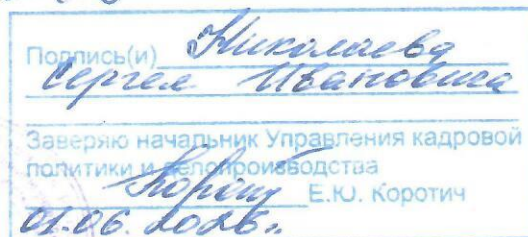 Подпись(и) Николаева
Сергея Ивановича
Заверяю начальник Управления кадровой
политики и делопроизводства
Е.Ю. Коротич
01.06.2026г.